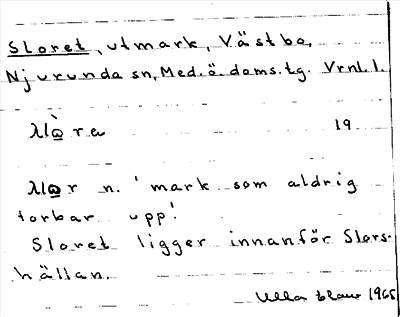 Sloret, utmark, Västbo,
Njurunda sn, Med. ö. doms.tg. Vrnl. l.
19
n. 'mark som aldrig
torkar upp'.
Sloret ligger innanför Slors-
hällan.
Ulla 1965